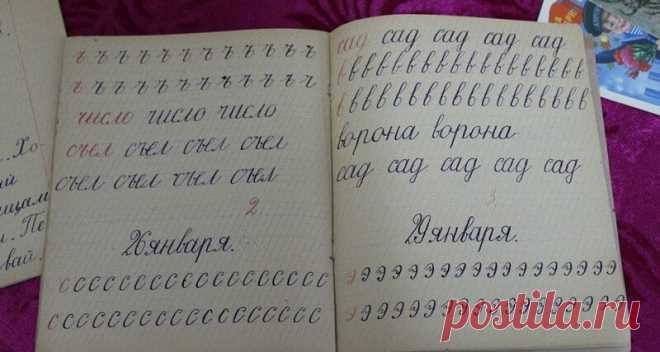 . Хо-
й
ицам
. Пе
вай.
ъ ъ ъ ъ ъ ъ ъ ъ ъ ъ ъ
ъ ъ ъ ъ ъ ъ ъ ъ ъ ъ ъ
число число число
съел съел съел съел
съел съел съел съел
2.
26 января.
с с с с с с с с с с с с с с с с с с
с с с с с с с с с с с с с с с с с с
сад сад сад сад сад
в в в в в в в в в в в в в в в в в
в в в в в в в в в в в в в в в в в
ворона ворона
сад сад сад сад сад
3
29 января.
Э Э Э Э Э Э Э Э Э Э Э Э Э Э Э Э Э
Э Э Э Э Э Э Э Э Э Э Э Э Э Э Э Э Э
postila.ru